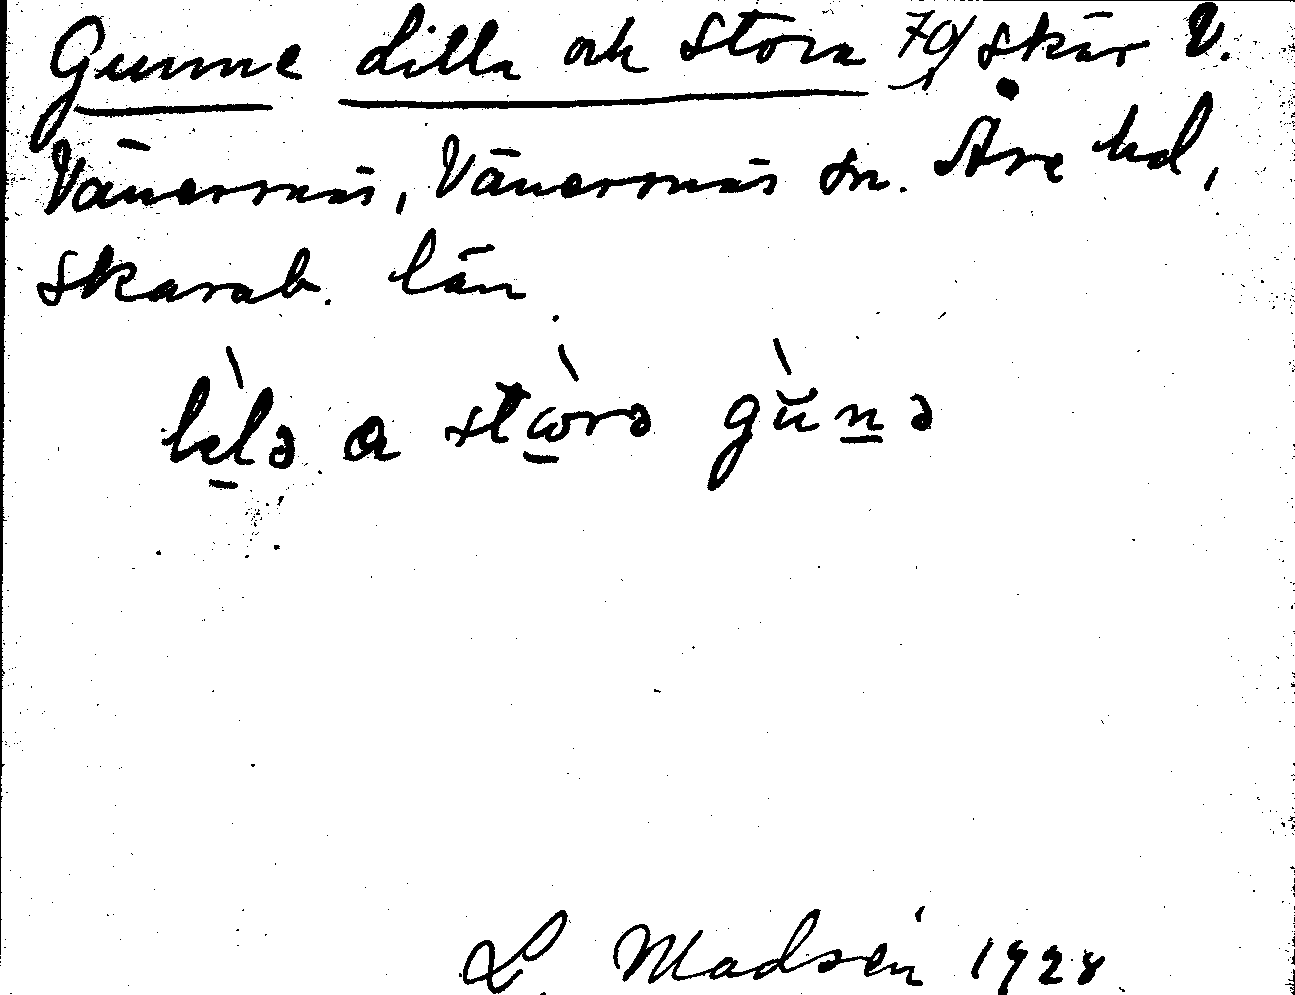 Gunne Lilla och Stora 79/ skär V.
Vänersnäs, Vänersnäs sn. Åse hd,
Skarab. län.
lela a stωrə gŭnə
L. Madsén 1928